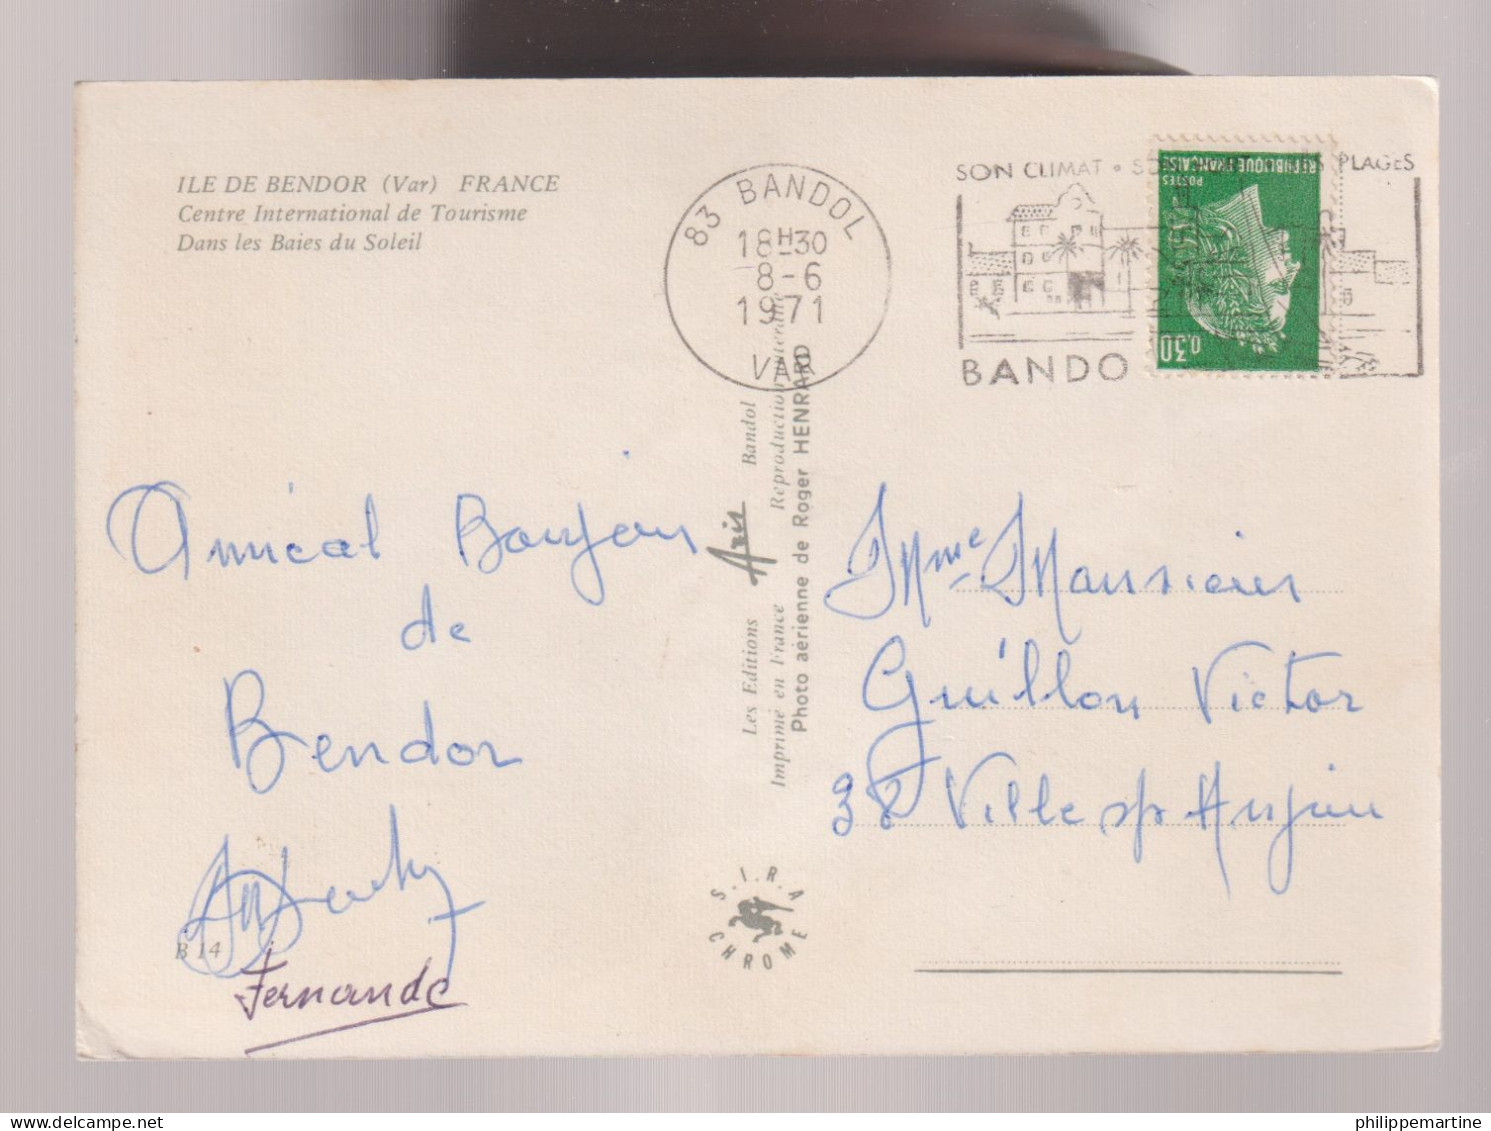 ILE DE BENDOR (Var) FRANCE
Centre International de Tourisme
Dans les Baies du Soleil
83 BANDOL
18H30
8-6
1971
VAR
SON CLIMAT • PLAGES
BANDO
POSTES
RÉPUBLIQUE FRANÇAISE
0,30
Amical Bonjour
de
Bendor
Fernande
B 14
Les Editions Aris Bandol
Imprimé en France Reproduction interdite
Photo aérienne de Roger HENRARD
S.I.R.A
CHROME
Mme Monsieur
Guillon Victor
38 Ville s/ Anjou
delcampe.net
philippemartine